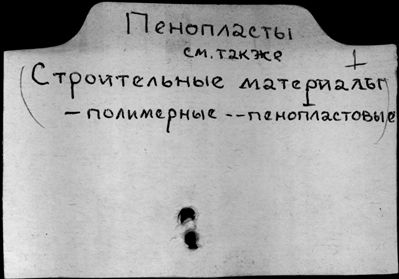 Пенопласты
см. также
(Строительные материалы
- полимерные -- пенопластовые)